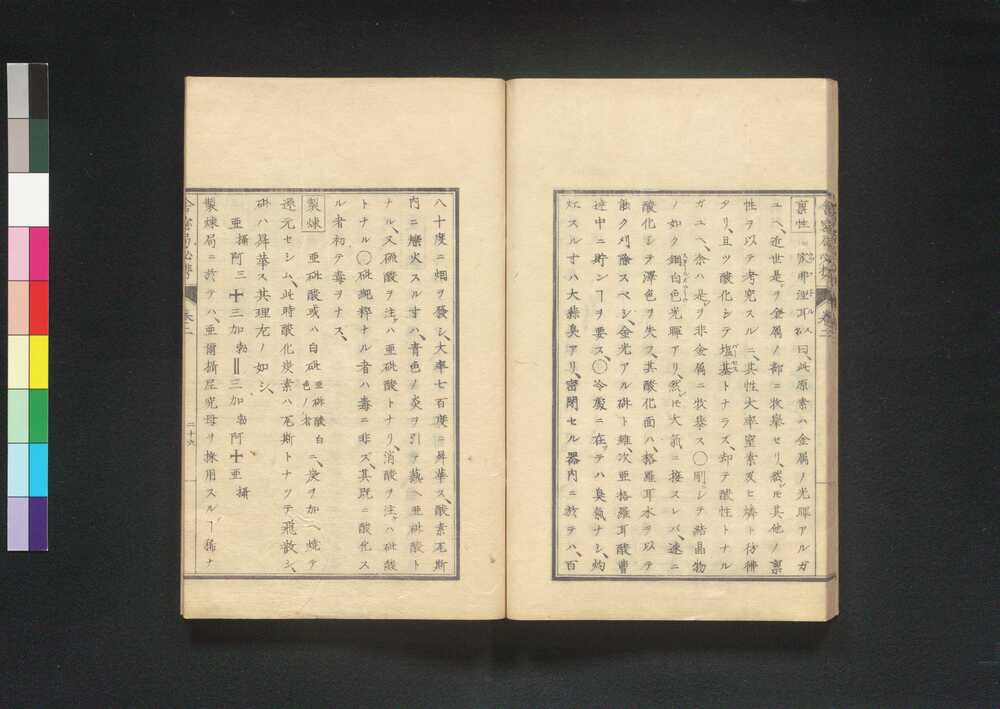 稟性 家弗涅耳氏曰、此原素ハ金属ノ光暉アルガ
ユヘ、近世是ヲ金属ノ部ニ攷挙セリ、然レ𪜈其他ノ稟
性ヲ以テ考究スルニ、其性大率窒素及ヒ燐ト彷彿
タリ、且ツ酸化シテ塩基トナラズ、却テ酸性トナル
ガユヘ、余ハ是ヲ非金属ニ攷挙ス〇剛ニシテ結晶物
ノ如ク鋼白色光暉アリ、然レ𪜈大氣ニ接スレバ、速ニ
酸化シテ澤色ヲ失ス、其酸化面ハ、格羅耳水ヲ以テ
能ク刈除スベシ、金光アル砒ト雖、次亜格羅耳酸曹
達中ニ貯ンヿヲ要ス、〇冷處ニ在テハ臭氣ナシ、灼
𤇆スル寸ハ大蒜臭アリ、密閉セル器内ニ於テハ、百
八十度ニ烟ヲ發シ、大率七百度ニ昇華ス、酸素瓦斯
内ニ燃火スル寸ハ、青色ノ炎ヲ引テ蓺ヘ亜砒酸ト
ナル、又硫酸ヲ注ゲハ亜砒酸トナリ、消酸ヲ注ゲハ砒酸
トナル〇砒純粋ナル者ハ毒ニ非ズ、其既ニ酸化ス
ル者初テ毒ヲナス、
製煉 亜砒酸或ハ白砒 亜砒酸白色ノ者 ニ、炭ヲ加ヘ焼テ
還元セシム、此時酸化炭素ハ瓦斯トナツテ飛散シ、
砒ハ昇華ス其理左ノ如シ、
亜 攝阿三十三加勃‖三加勃阿十亜 攝
製煉局ニ於テハ、亜爾攝尼究母ヲ採用スルヿ稀ナ
卷二
二十六